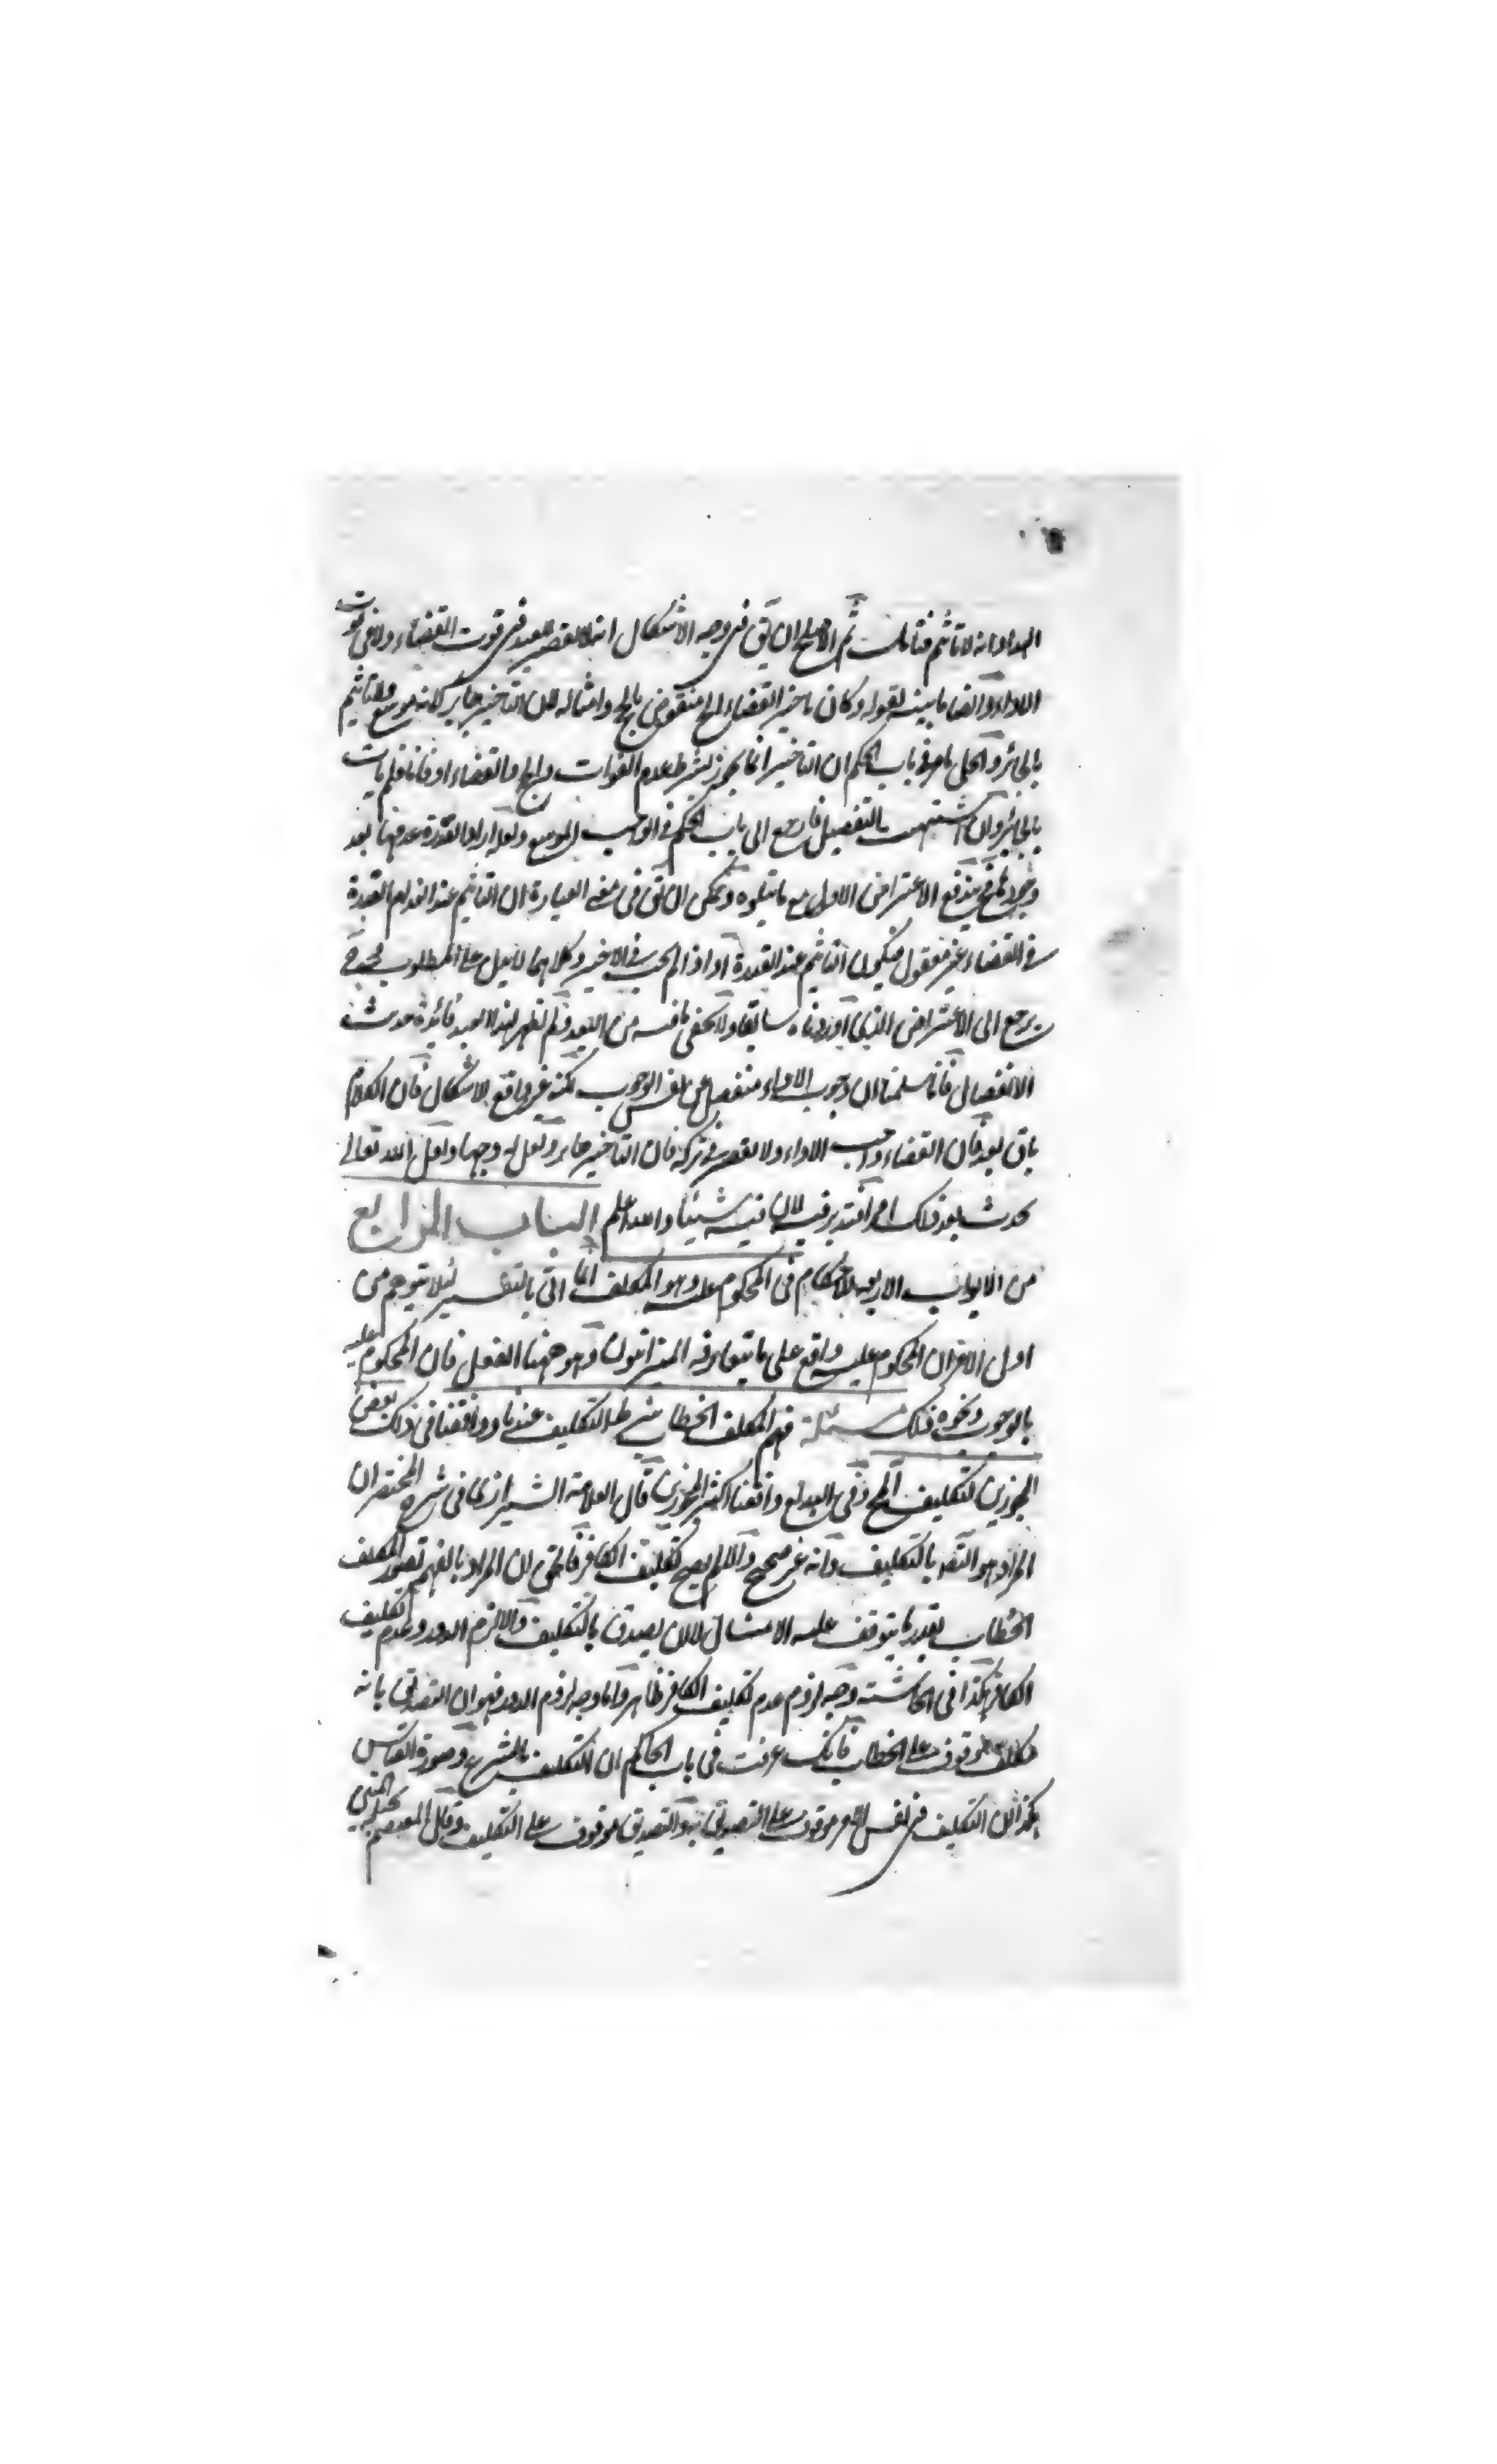 المراد انه لا تأثم فتأمل ثم الاصلح ان يق في وجه الاشكال انه لا تقصير للعبد في فوت القضاء ولا في فوت
الاداء وايضا ما بينه لقوله وكان تاخير القضاء الخ منقوض بالحج وامثاله لان التاخير جايز كانه موسع ولا تأثيم
بالجائز والحل ما مر في باب الحكم ان التاخير انما يجوز بشرط عدم الفوات والحج والقضاء اذ فاتا فلم يأت
بالجائز وان اشتهيت التفصيل فارجع الى باب الحكم في الواجب الموسع ولعله اراد القدرة عدمها بعد
وجودها فح يندفع الاعتراض الاول مع ما يتلوه ويمكن ان يق في معنى العبارة ان التأثيم عند انعدام القدرة
في القضاء غير معقول فيكون التأثيم عند القدرة او اذا لم يجب في الاخير وكلاهما لا يدل على المطلوب فح
يرجع الى الاعتراض الذي اوردناه سابقا ولا يخفى ما فيه من البعد ولم يظهر لهذا العبد فائدة حديث
الانفصال فانا سلمنا ان وجوب الاداء منفصل عن نفس الوجوب لكنه غير دافع للاشكال فان الكلام
باق بعد فان القضاء واجب الاداء ولا تقصير في تركه فان التأخير جايز ولعل له وجها ولعل الله تعالى
يحدث بعد ذلك امرا فتدبر فيه لان فيه شيئا والله اعلم الباب الرابع
من الابواب الاربعة للاحكام في المحكوم عليه وهو المكلف انما اتى بالتفسير لئلا يتوهم من
اول الامر ان المحكوم عليه واقع على ما يتعارفه الميزانيون وهو ههنا الفعل فان المحكوم عليه
بالوجوب ونحوه ذلك مسئلة فهم المكلف الخطاب شرط التكليف عندنا ووافقنا في ذلك بعض
المجوزين لتكليف المح وفي البديع وافقنا اكثر المجوزين قال العلامة الشيرازي في شرح المختصر ان
المراد هو التصديق بالتكليف وانه غير صحيح والا لم يصح تكليف الكافر فالحق ان المراد بالفهم تصور المكلف
الخطاب بقدر ما يتوقف عليه الامتثال لا لان يصدق بالتكليف والا لزم الدور وعدم تكليف
الكافر هكذا في الحاشية وجه لزوم عدم تكليف الكافر ظاهر واما وجه لزوم الدور فهو ان التصديق بانه
مكلف موقوف على الخطاب فانك عرفت في باب الحاكم ان التكليف بالشرع وصورة القياس
هكذا لان التكليف في نفس الامر موقوف على التصديق به والتصديق موقوف على التكليف وقال المعصم